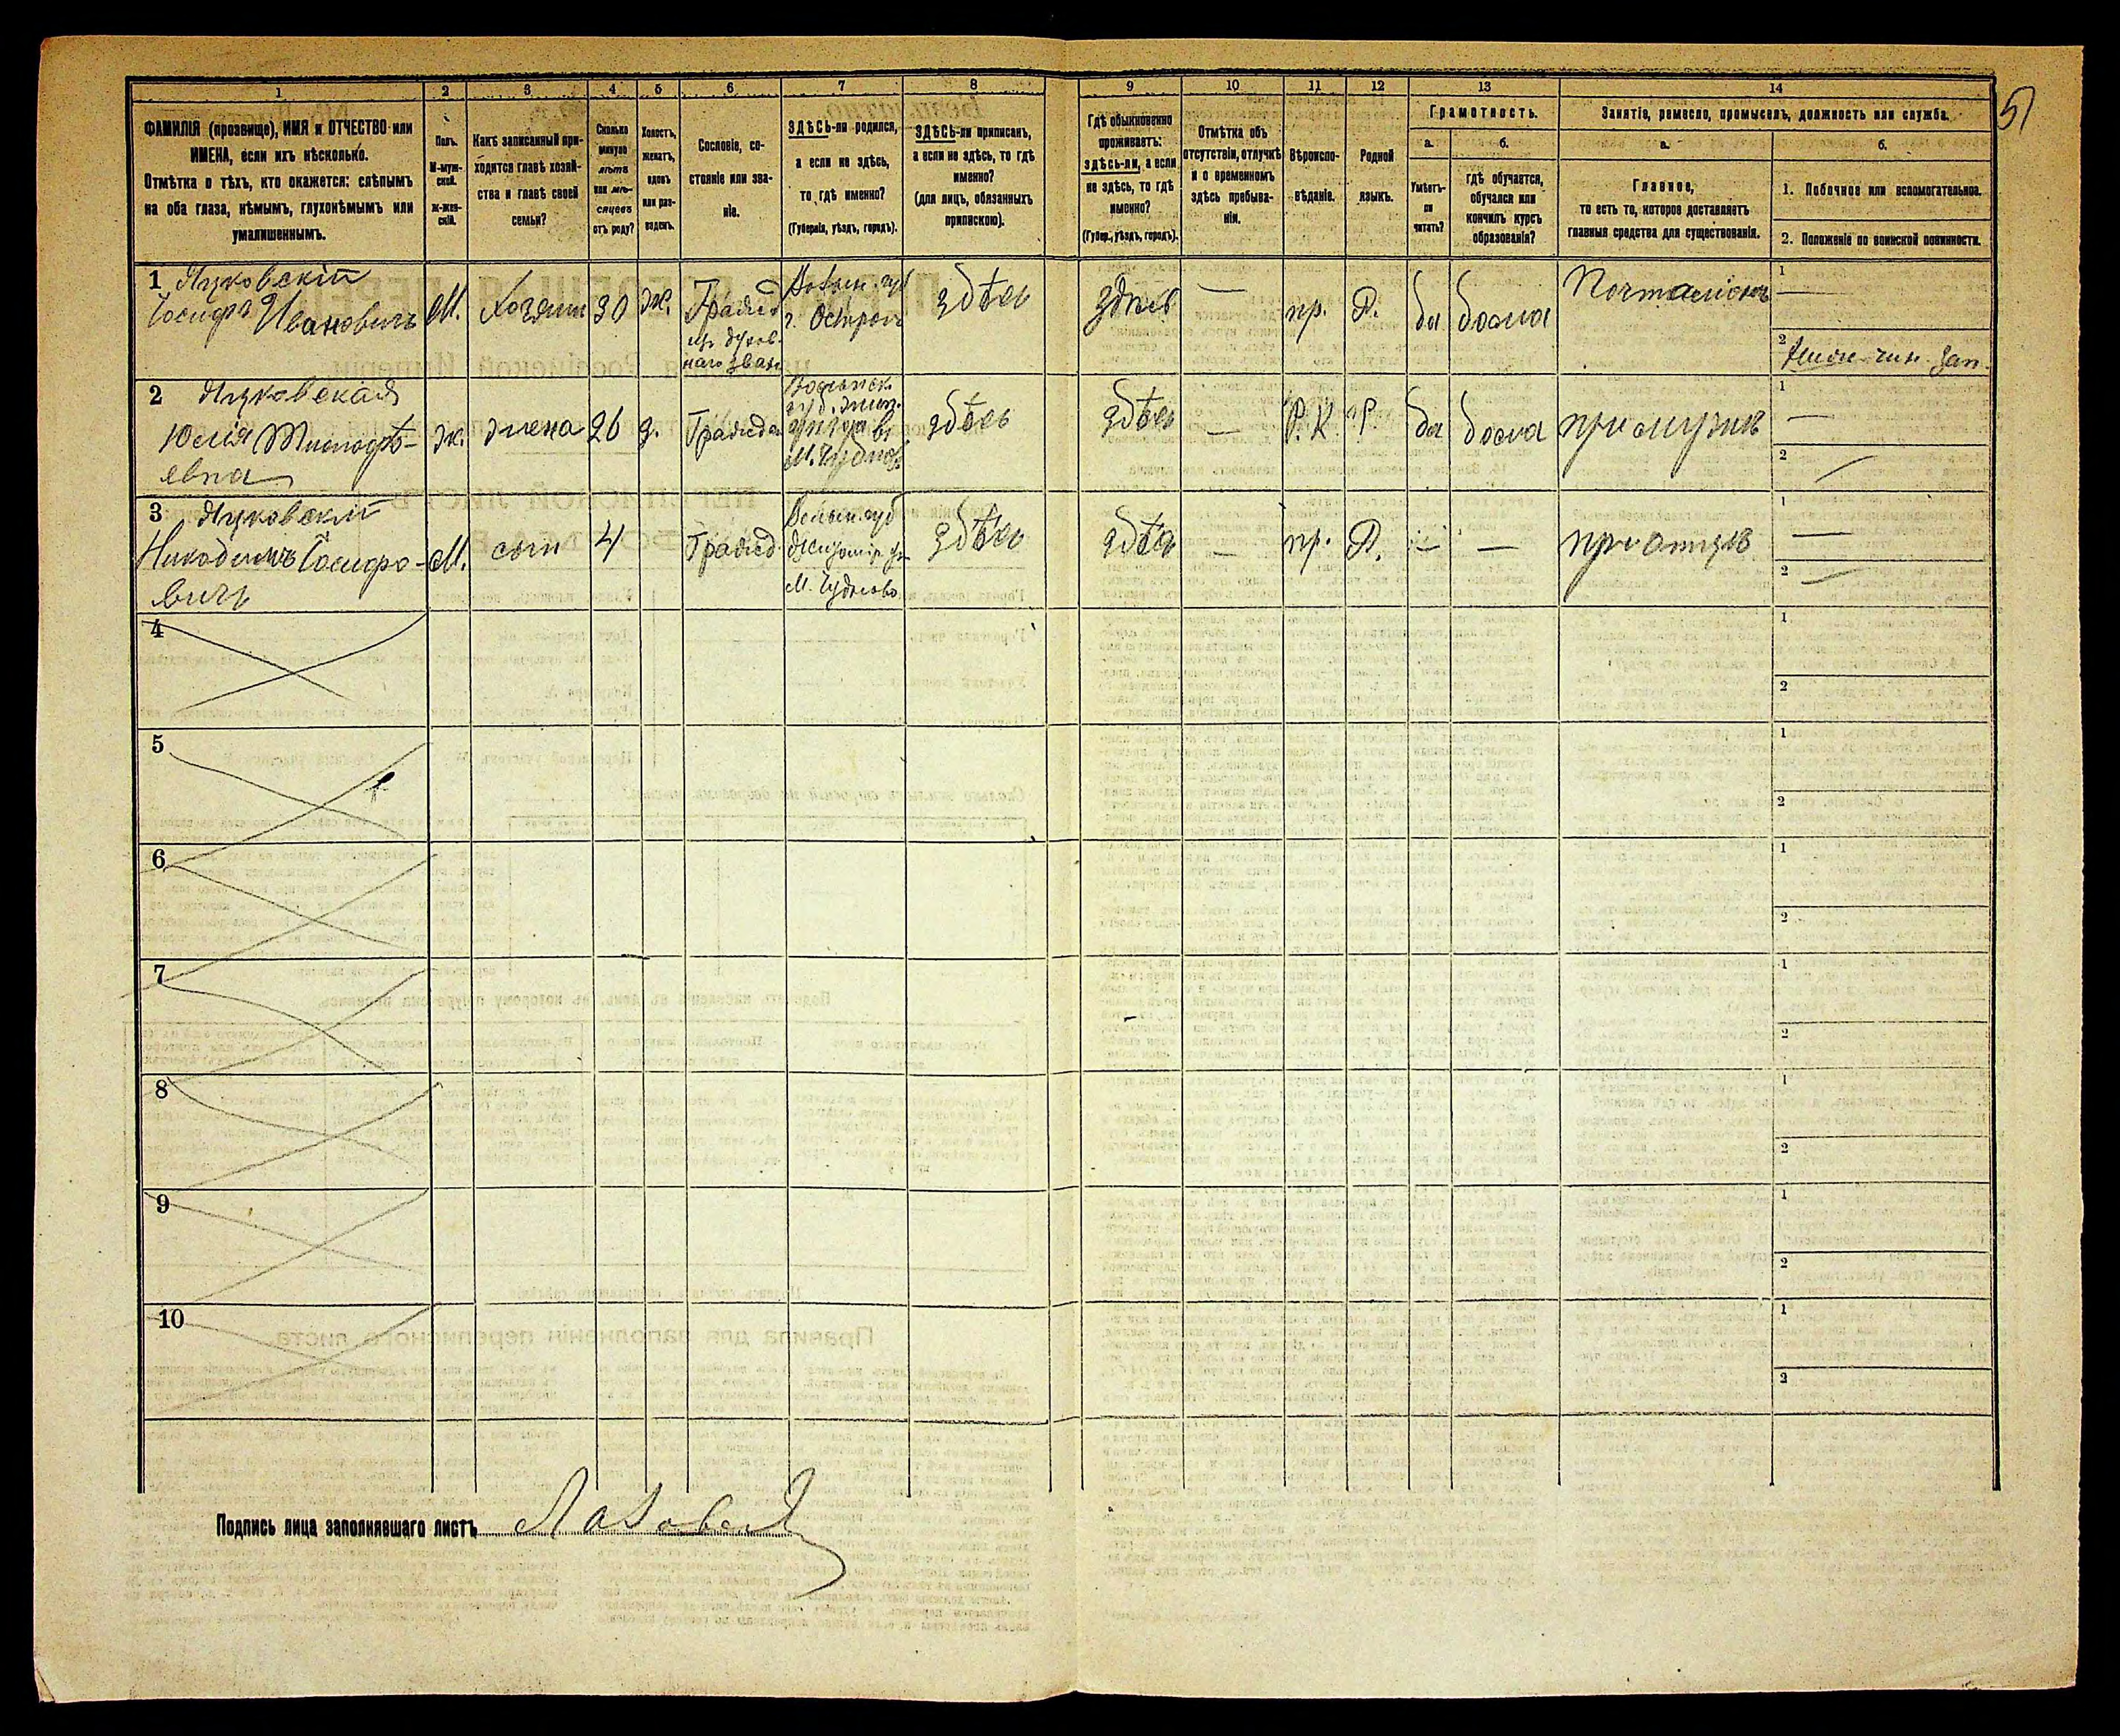 1 2 3 4 5 6 7 8 9 10 11 12 13 14
5
ФАМИЛІЯ (прозвище), ИМЯ и ОТЧЕСТВО или
ИМЕНА, если ихъ нѣсколько.
Отмѣтка о тѣхъ, кто окажется: слѣпымъ
на оба глаза, нѣмымъ, глухонѣмымъ или
умалишеннымъ.
Полъ.
М-муж-
ской.
Ж-жен-
скій.
Какъ записанный при-
ходится главѣ хозяй-
ства и главѣ своей
семьи?
Сколько
минуло
лѣтъ
или мѣ-
сяцевъ
отъ роду?
Холостъ,
женатъ,
вдовъ
или раз-
веденъ.
Сословіе, со-
стояніе или зва-
ніе.
ЗДѢСЬ-ли родился,
а если не здѣсь,
то гдѣ именно?
(Губернія, уѣздъ, городъ).
ЗДѢСЬ-ли приписанъ,
а если не здѣсь, то гдѣ
именно?
(для лицъ, обязанныхъ
припискою).
Гдѣ обыкновенно
проживаетъ:
здѣсь-ли, а если
не здѣсь, то гдѣ
именно?
(Губер., уѣздъ, городъ).
Отмѣтка объ
отсутствіи, отлучкѣ
и о временномъ
здѣсь пребыва-
ніи.
Вѣроиспо-
вѣданіе.
Родной
языкъ.
Грамотность.
а.
Умѣетъ-
ли
читать?
б.
гдѣ обучается,
обучался или
кончилъ курсъ
образованія?
Занятіе, ремесло, промыселъ, должность или служба.
а.
Главное,
то есть то, которое доставляетъ
главныя средства для существованія.
б.
1. Побочное или вспомогательное.
2. Положеніе по воинской повинности.
1
Іосифъ Ивановичъ
М. Хозяин 30 ж.
Гражд
из духов-
наго зван
г. Острогъ
здѣсь
здѣсь
—
пр. Р. да дома
Почталіонъ
1 —
2
2
Юлія
евна
ж. жена 26 з. Граждан
Волынск.
губ. Жит.
М. Чуднов
здѣсь
здѣсь
— Р.К. Р. да дома
при мужѣ
1 —
2 —
3
Никодимъ Іосифо-
вичъ
М. сын 4 Гражд
Волын. губ
Житомір. у.
М. Чудново
здѣсь
здѣсь
— пр. Р. — —
при отцѣ
1 —
2 —
4
1
2
5
1
2
6
1
2
7
1
2
8
1
2
9
1
2
10
1
2
Подпись лица заполнявшаго листъ